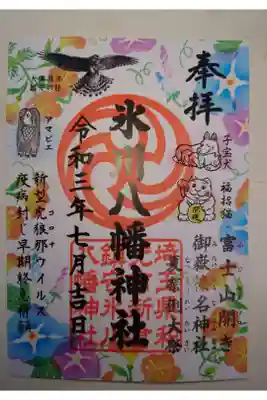 奉拝
子宝犬
福招猫
富士山開き
御嶽榛名神社
夏祭大祭
氷川八幡神社
令和三年七月吉日
アマビエ
新型虎狼那ウイルス
コロナ
疫病封じ早期終息祈願